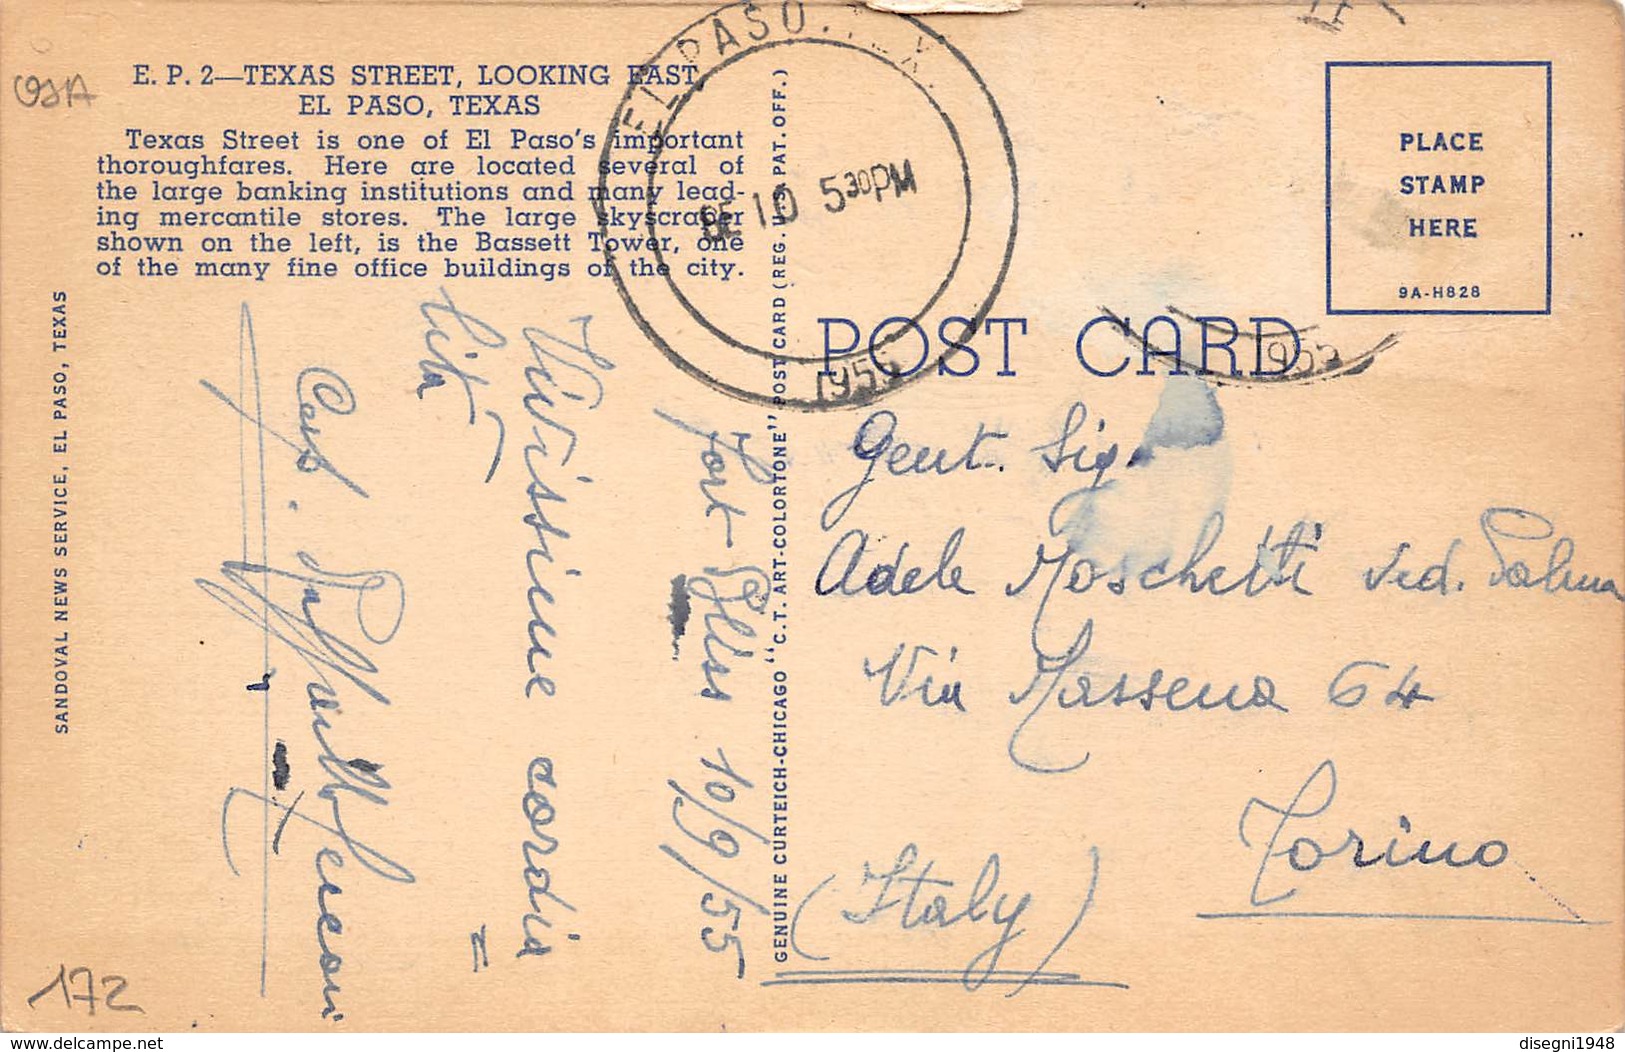 E. P. 2—TEXAS STREET, LOOKING EAST,
EL PASO, TEXAS
Texas Street is one of El Paso's important
thoroughfares. Here are located several of
the large banking institutions and many lead-
ing mercantile stores. The large skyscraper
shown on the left, is the Bassett Tower, one
of the many fine office buildings of the city.
SANDOVAL NEWS SERVICE, EL PASO, TEXAS
GENUINE CURTEICH-CHICAGO "C.T. ART-COLORTONE" POST CARD (REG. U.S. PAT. OFF.)
EL PASO. TEX.
10 5 30PM
1955
POST CARD
1955
PLACE
STAMP
HERE
9A-H828
Fort Bliss 10/9/55
Vivissime cordia
lità
Cap.
Gent. Sig.
Adele Moschetti Ved. Palma
Via Massena 64
Torino
(Italy)
USA
172
www.delcampe.net
disegni1948